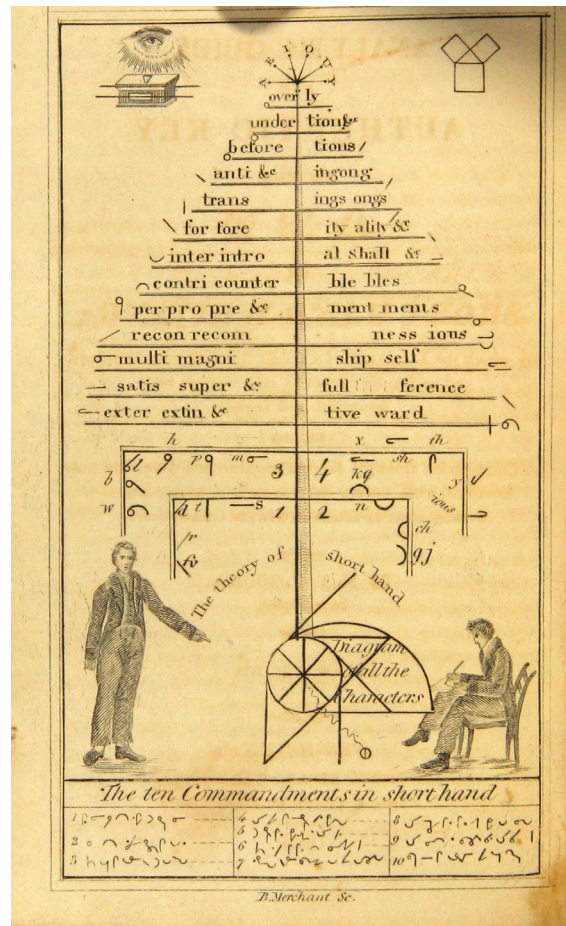 A E I O U Y
over ly
under tion &c
before tions
anti &c ingong
trans ings ongs
for fore ity ality &c
inter intro al shall &c
contri counter ble bles
per pro pre &c ment ments
recon recom ness ious
multi magni ship self
satis super &c full ference
exter extin &c tive ward
h x th
b p m 3 4 kg sh y
w ious
d t s 1 2 n
r ch
fv gj
The theory of short hand
Diagram
of all the
Characters
The ten Commandments in short hand
1 4 8
2 5 9
3 6 10
7
B. Merchant Sc.